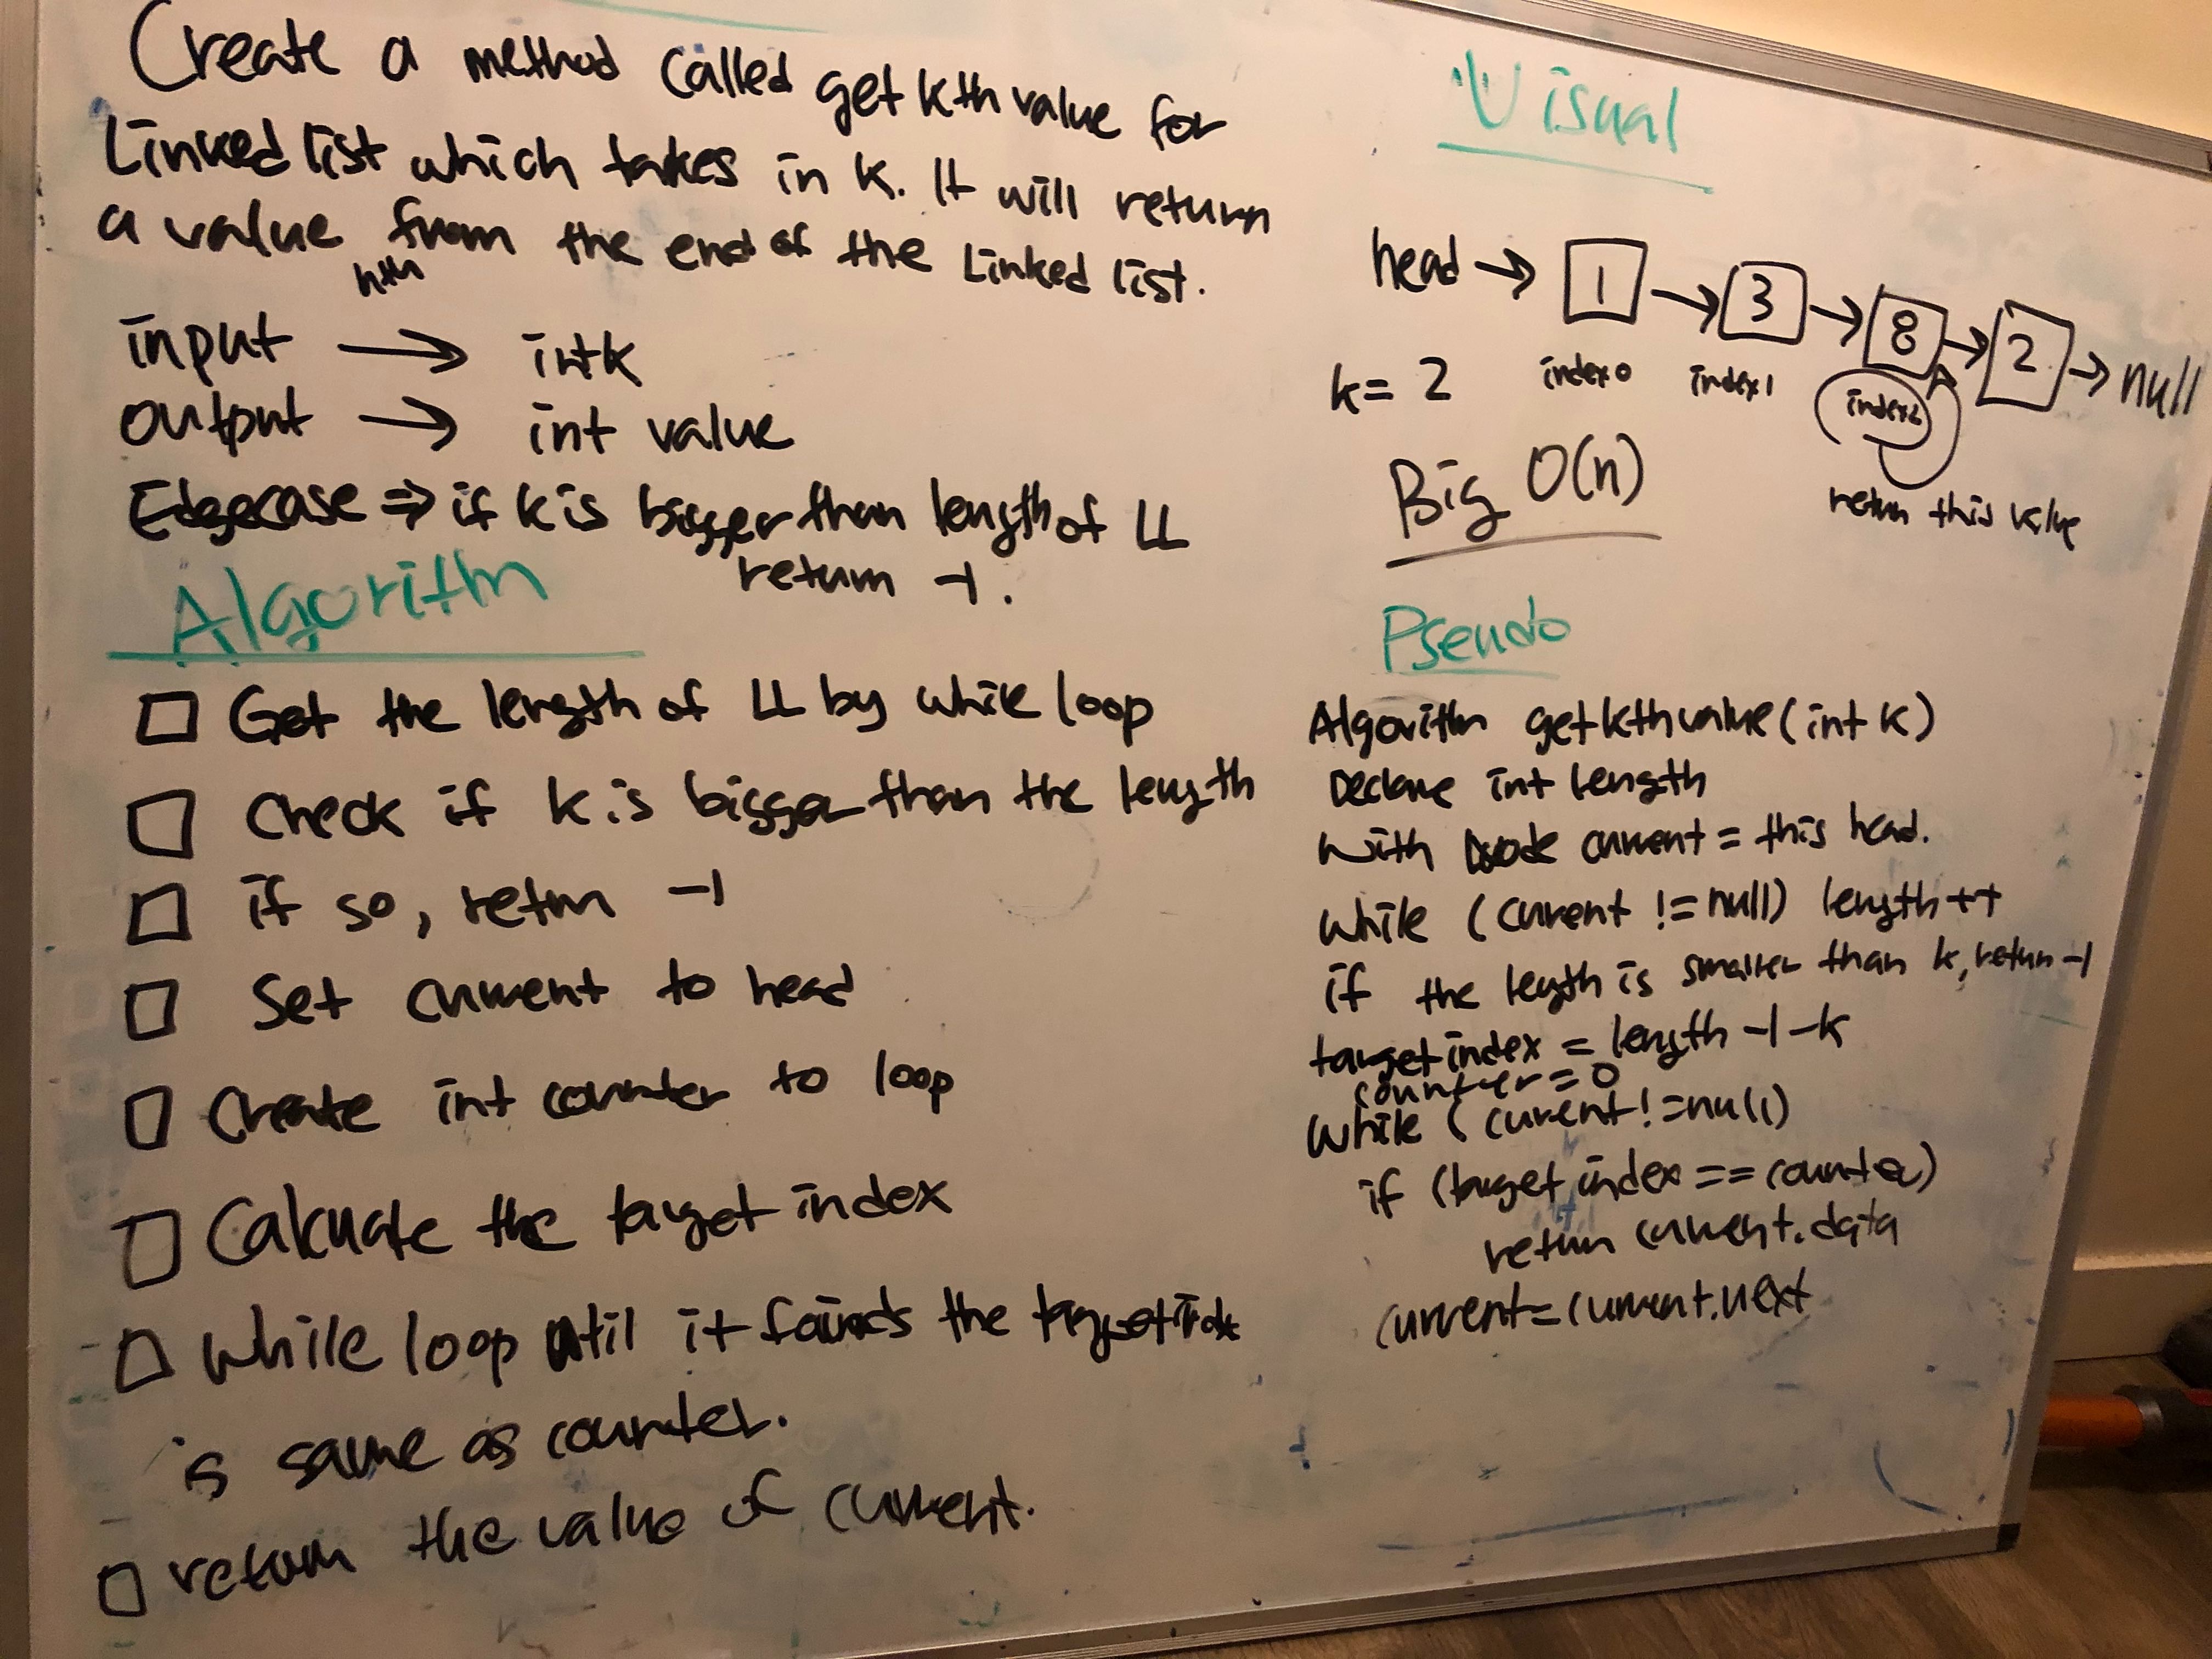 Create a method called get kth value for
Linked list which takes in k. It will return
a value from the end of the Linked list.
nth
input → int k
output → int value
Edgecase ⇒ if k is bigger than length of LL
return -1.
Algorithm
□ Get the length of LL by while loop
□ Check if k is bigger than the length
□ if so, return -1
□ Set current to head
□ Create int counter to loop
□ Calculate the target index
□ While loop until it the target index
is same as counter.
□ return the value of current.
Visual
head → 1 → 3 → 8 → 2 → null
index0 index1 index2
k = 2
return this value
Big O(n)
Pseudo
Algorithm getkthvalue(int k)
Declare int length
With Node current = this head.
While (current != null) length++
if the length is smaller than k, return -1
target index = length -1 -k
counter = 0
While (current != null)
if (target index == counter)
return current.data
current = current.next